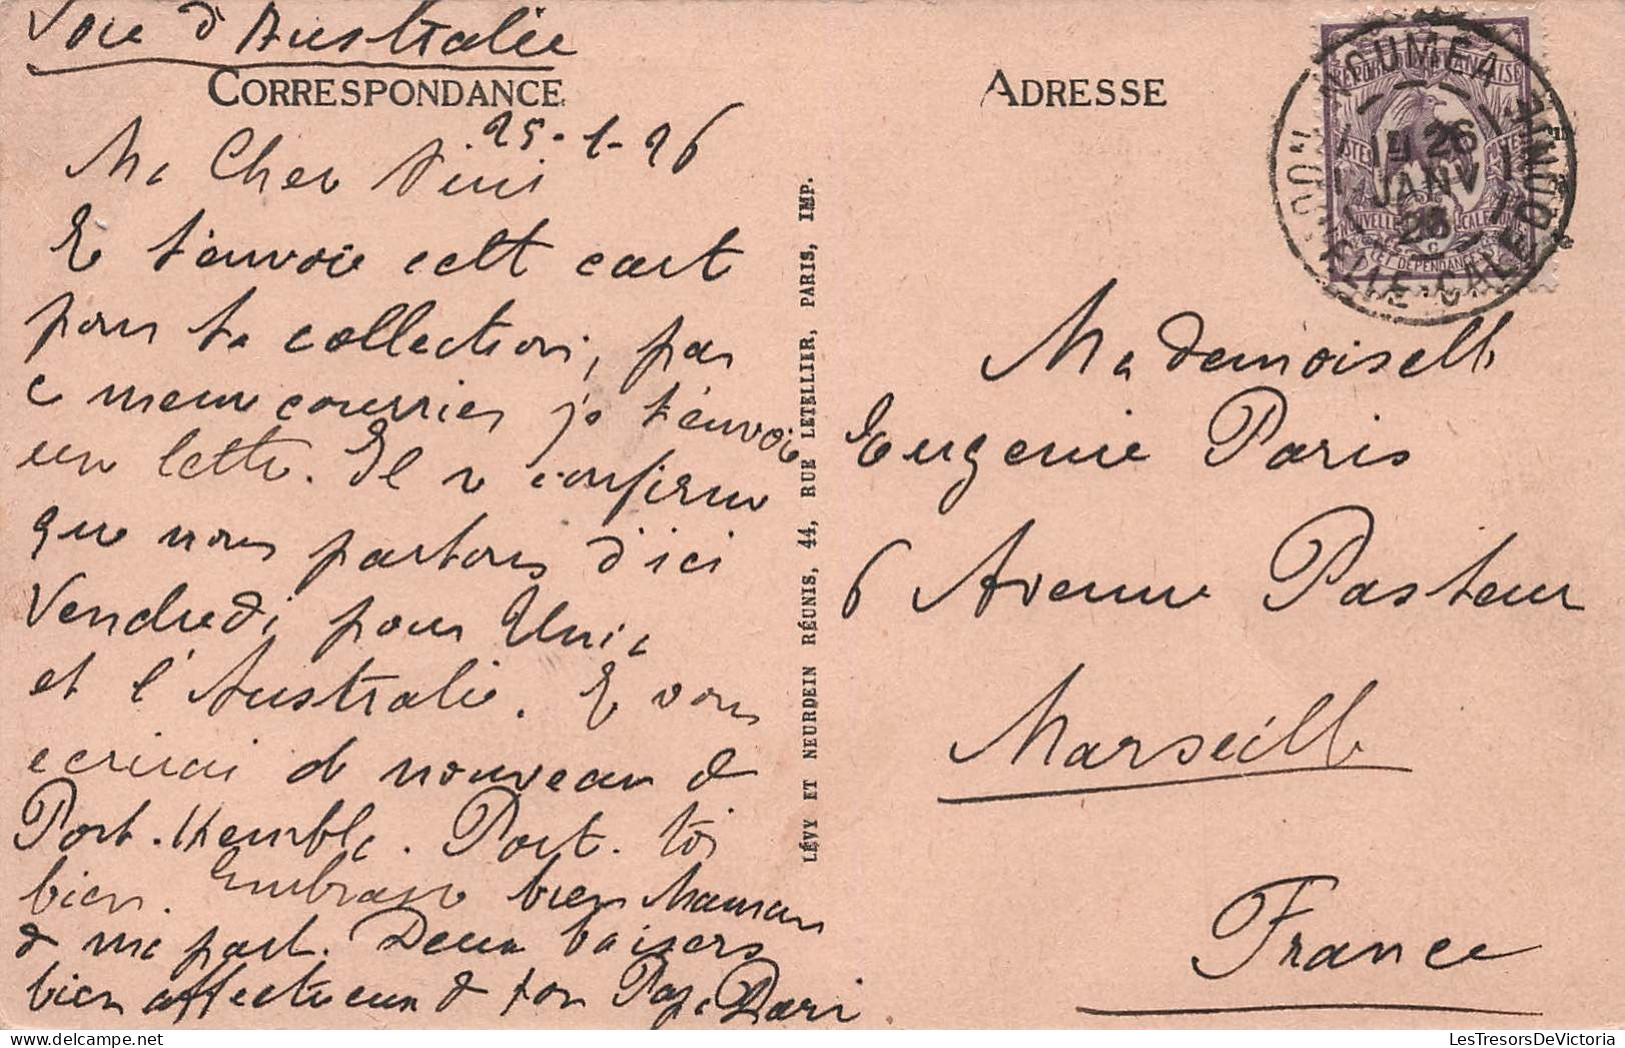 Voie d'Australie
CORRESPONDANCE
25-1-26
Ma Cher Nini
Je t'envoie cett cart
pour ta collection, par
ce meme courrier je t'envoie
un lettr. Il confirme
que nous partons d'ici
Vendredi pour
et l'Australie. Je vous
ecrirai de nouveau de
Port-Kembla. Port-toi
bien. Embrass bien Maman
de ma part. Deux baisers
bien affectueux de ton Papa Paris
LÉVY ET NEURDEIN RÉUNIS, 44, RUE LETELLIER, PARIS, IMP.
ADRESSE
NOUMEA
26
JANV
26
NLLE CALEDONIE
POSTES
NOUVELLE CALÉDONIE
ET DÉPENDANCES
Mademoisell
Eugenie Paris
6 Avenue Pasteur
Marseill
France
LesTresorsDeVictoria